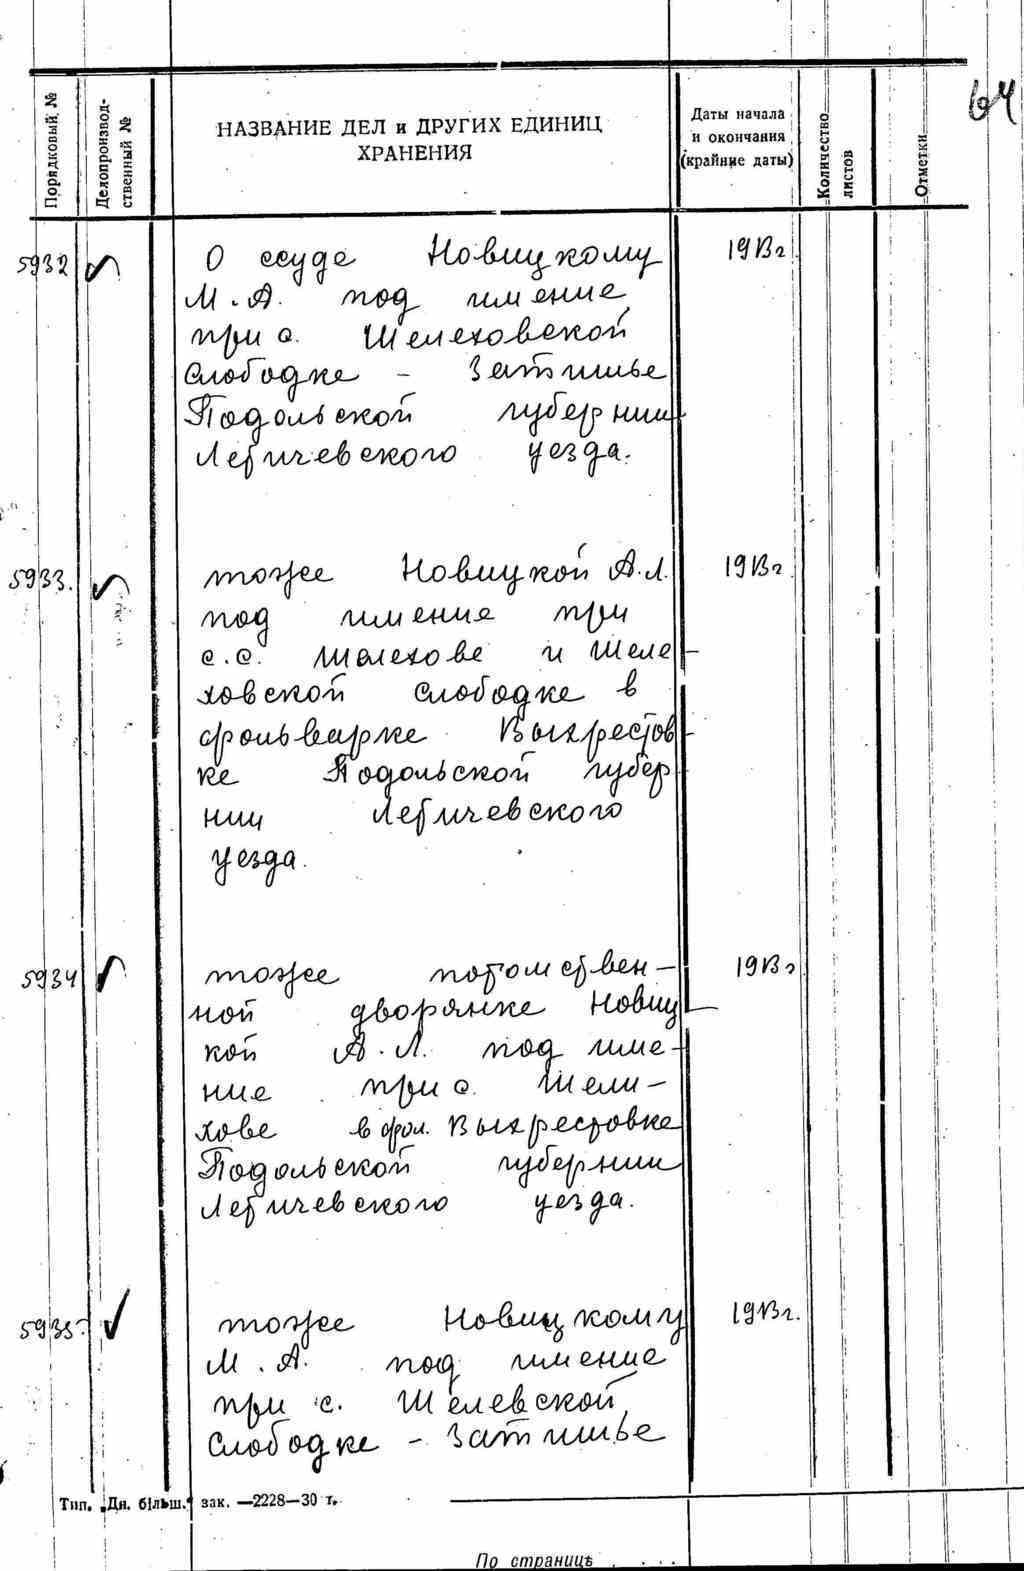 64
Порядковый №
Делопроизвод-
ственный №
НАЗВАНИЕ ДЕЛ и ДРУГИХ ЕДИНИЦ
ХРАНЕНИЯ
Даты начала
и окончания
(крайние даты)
Количество
листов
Отметки
5932 О ссуде Новицкому 1913г
М.А. под имение
при с. Шелеховской
Слободке - Затишье
Подольской губернии
Летичевского уезда.
5933. тоже Новицкой А.Л. 1913г.
под имение при
с.с. Шелехове и Шеле-
ховской Слободке в
фольварке Выхрестов-
ке Подольской губер-
нии Летичевского
уезда.
5934 тоже потомствен- 1913г.
ной дворянке Новиц-
кой А.Л. под име-
ние при с. Шели-
хове в фол. Выхрестовке
Подольской губернии
Летичевского уезда.
5935. тоже Новицкому 1913г.
М.А. под имение
при с. Шелевской
Слободке - Затишье
Тип. „Дн. більш." зак. —2228—30 т.
По странице . . . .